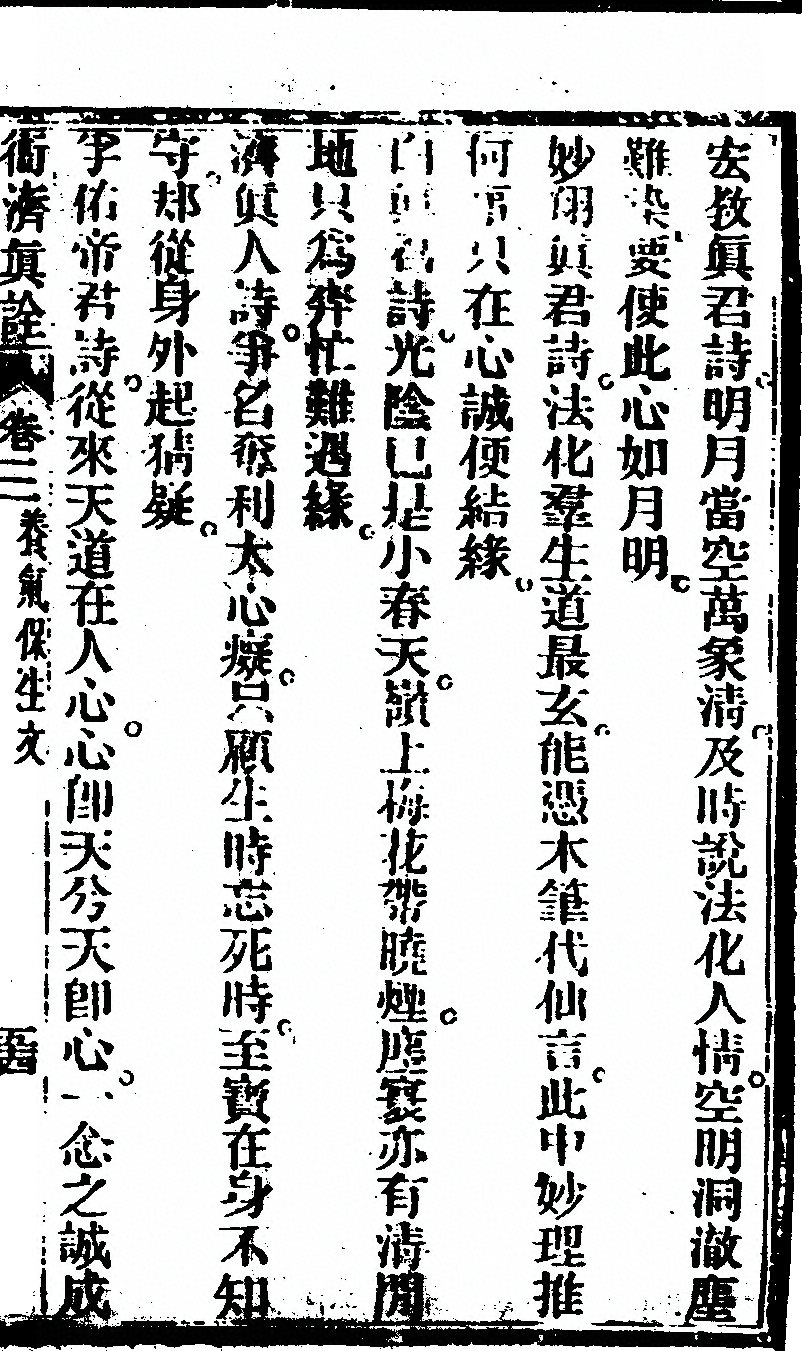 宏敎眞君詩明月當空萬象淸及時說法化人情空明洞澈塵
難染要使此心如月明
妙翊眞君詩法化羣生道最玄能憑木筆代仙言此中妙理推
何事只在心誠便結緣
白眞君詩光陰已是小春天嶺上梅花帶曉煙塵寰亦有淸閒
地只爲奔忙難遇緣
濟眞人詩爭名奪利太心癡只顧生時忘死時至寶在身不知
守却從身外起猜疑
孚佑帝君詩從來天道在人心心卽天兮天卽心一念之誠成
衜濟眞詮 卷二 養氣保生文